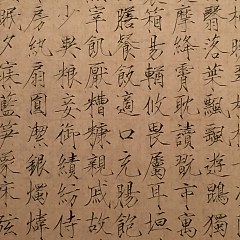 翳落葉飄颻遊鵾獨
摩絳霄耽讀翫市寓
箱易輶攸畏屬耳垣
膳飡飯適口充腸飽
宰飢厭糟糠親戚故
少異粮妾御績紡侍
房紈扇圓潔銀燭煒
眠夕寐藍笋象床弦